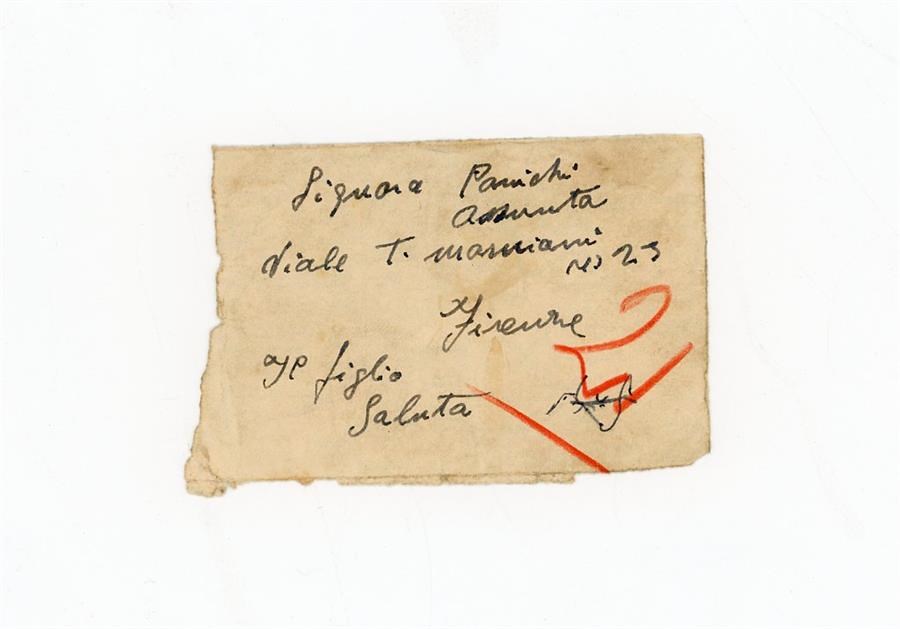 Signora Panichi
Assunta
Viale T. mamiani
No 23
Firenze
Il figlio
Saluta